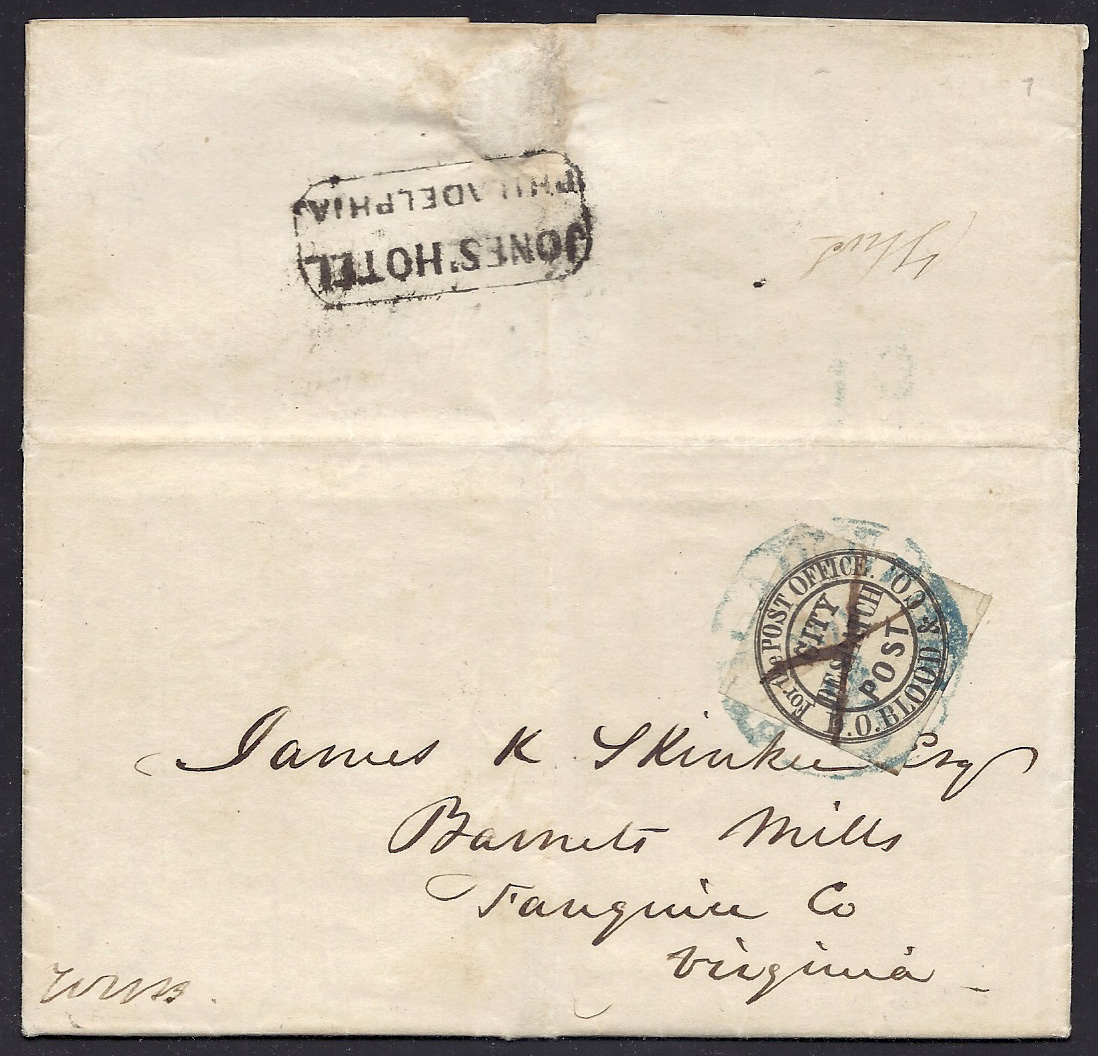 JONES' HOTEL
PHILADELPHIA
For the POST OFFICE.
CITY
DESPATCH
POST
D.O.BLOOD & CO.
James K Skinker Esq
Barnets Mills
Fauquier Co
Virginia